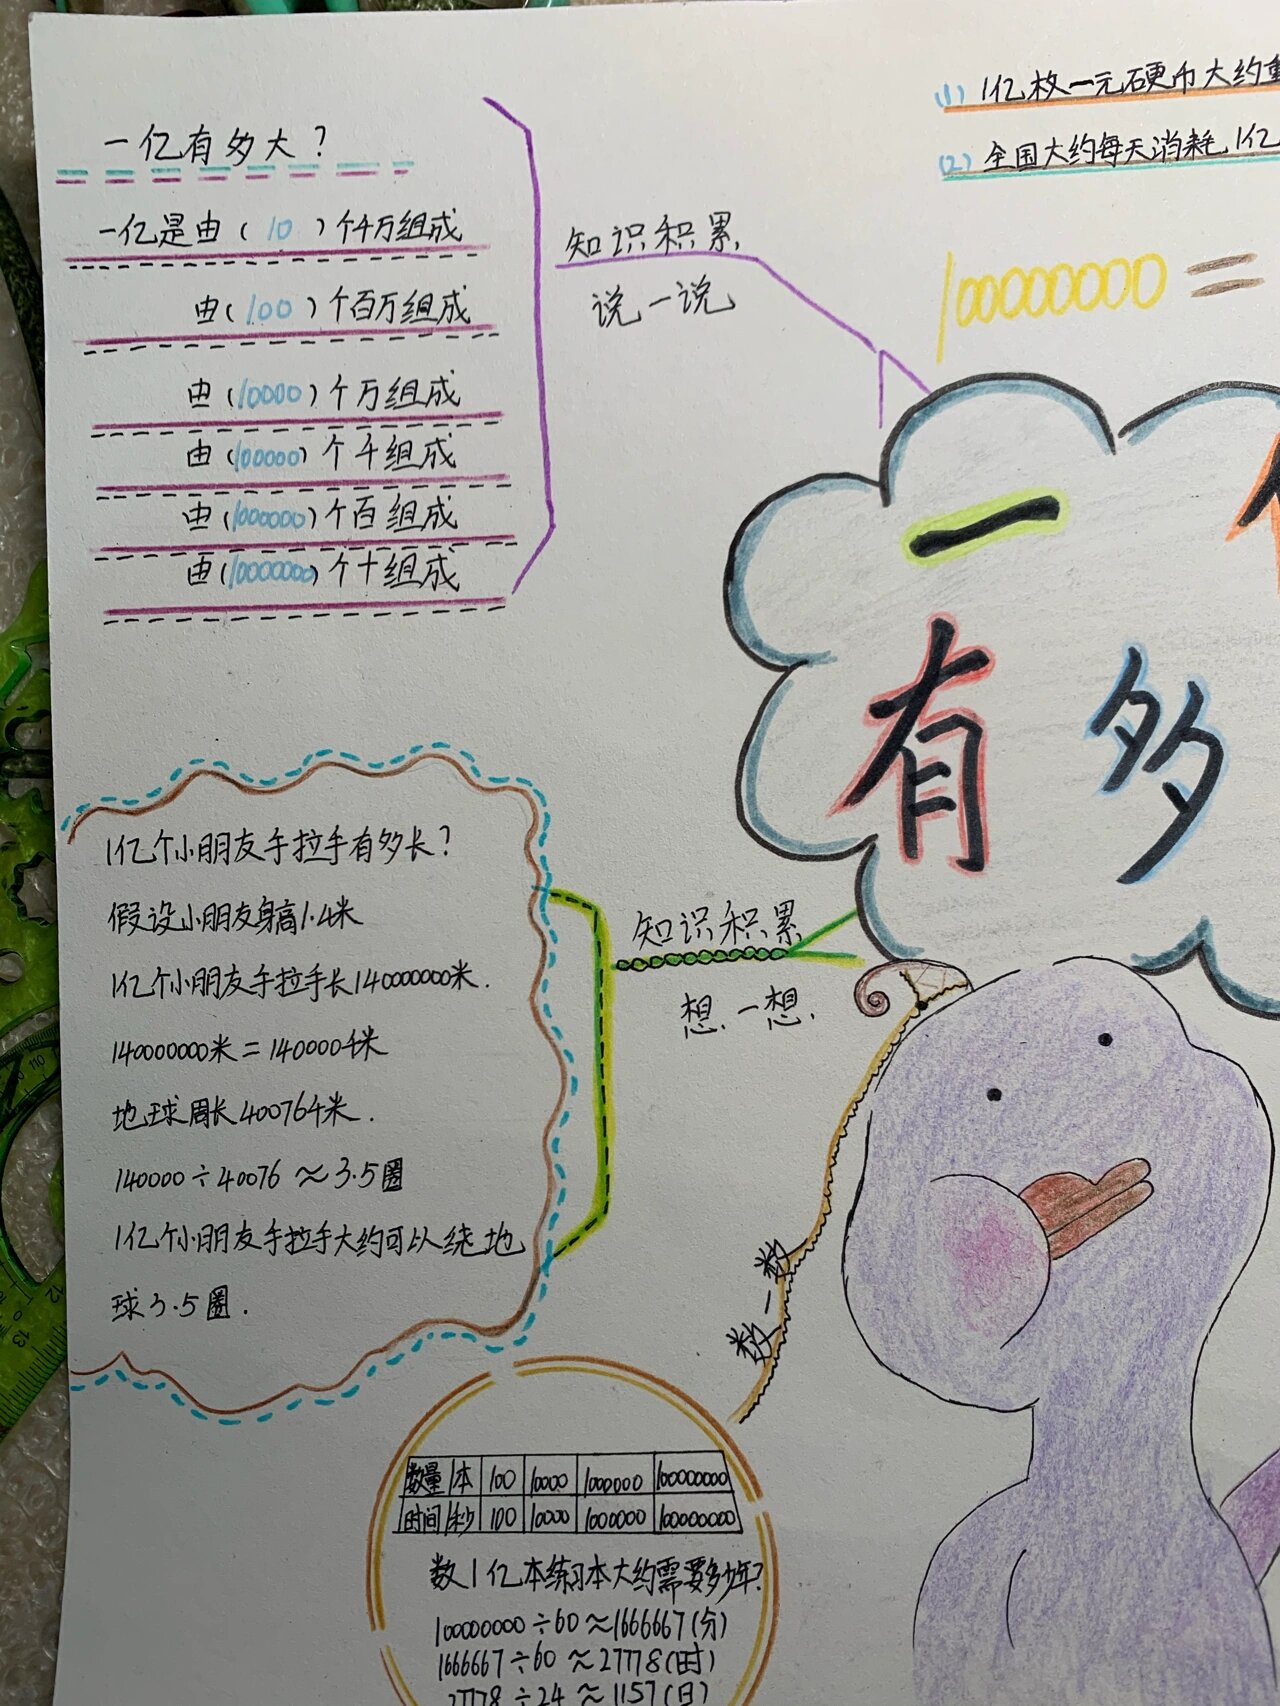 一亿有多大？
一亿是由（10）个千万组成
由（100）个百万组成
由（10000）个万组成
由（100000）个千组成
由（1000000）个百组成
由（10000000）个十组成
知识积累
说一说
(1) 1亿枚一元硬币大约重
(2) 全国大约每天消耗1亿
100000000=
一
有多
1亿个小朋友手拉手有多长？
假设小朋友身高1.4米
1亿个小朋友手拉手长140000000米.
140000000米=140000千米
地球周长40076千米.
140000÷40076≈3.5圈
1亿个小朋友手拉手大约可以绕地
球3.5圈.
知识积累
想一想.
数一数
数量 1本 100 10000 1000000 100000000
时间 1秒 100 10000 1000000 100000000
数1亿本练习本大约需要多少年？
100000000÷60≈1666667(分)
1666667÷60≈27778(时)
27778÷24≈1157(日)